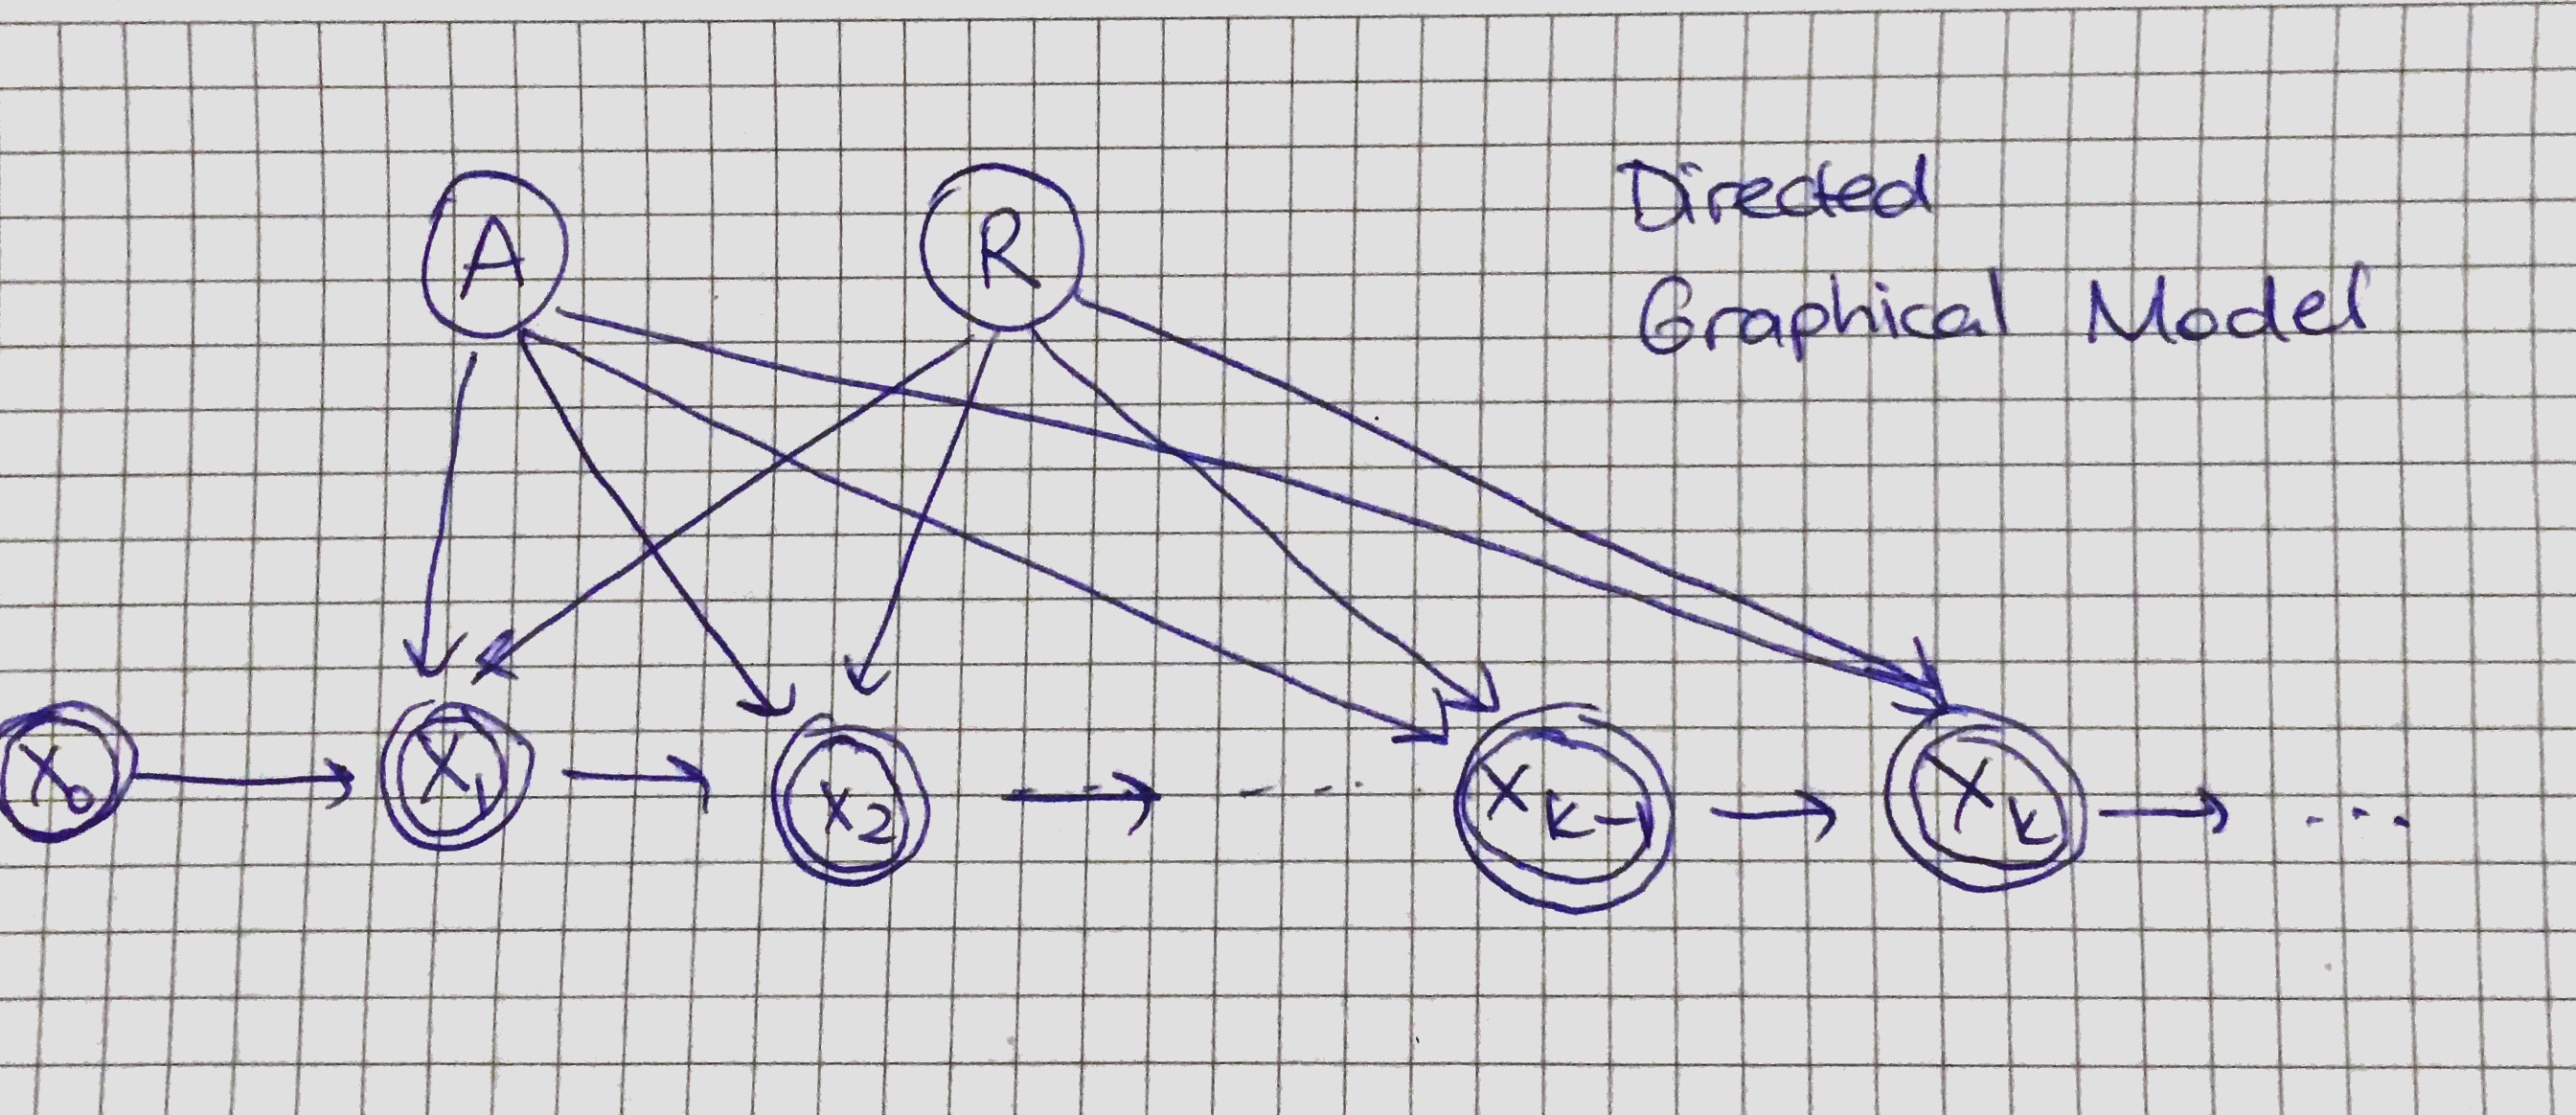 A R Directed
Graphical Model
X₀ X₁ X₂ X_{K-1} X_K